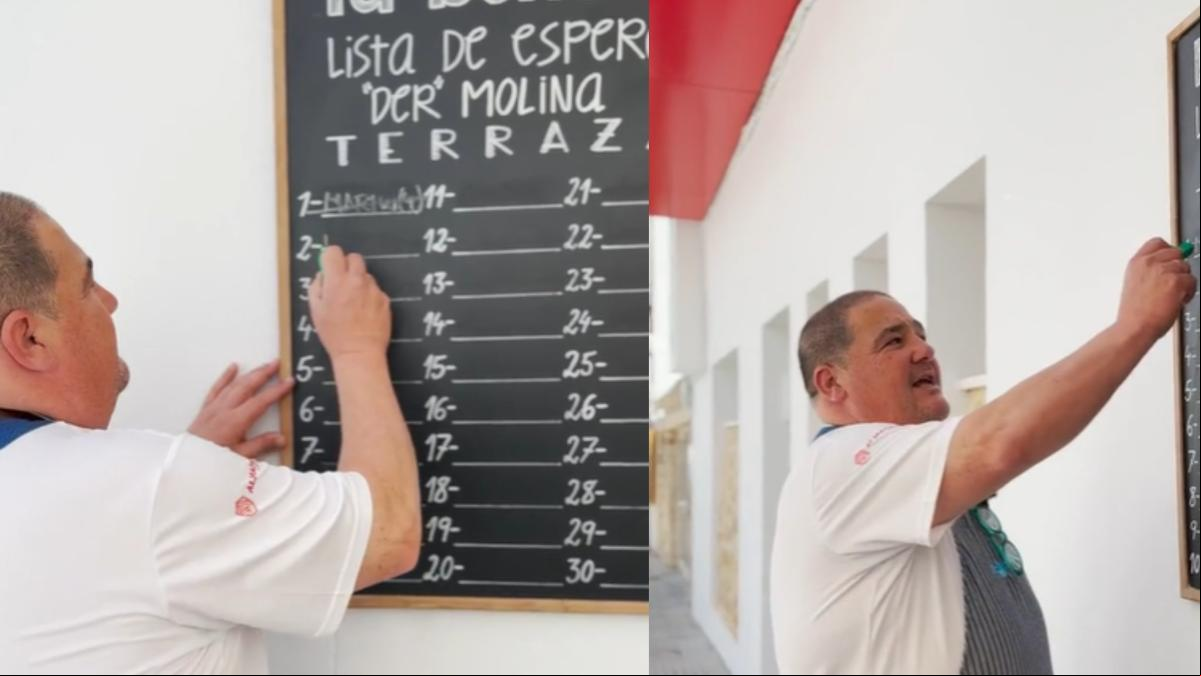 LISTA DE ESPER
"DER" MOLINA
TERRAZ
1- 11- 21-
2- 12- 22-
3 13- 23-
4 14- 24-
5- 15- 25-
6- 16- 26-
7- 17- 27-
18- 28-
19- 29-
20- 30-
5
6
7
8
9
10